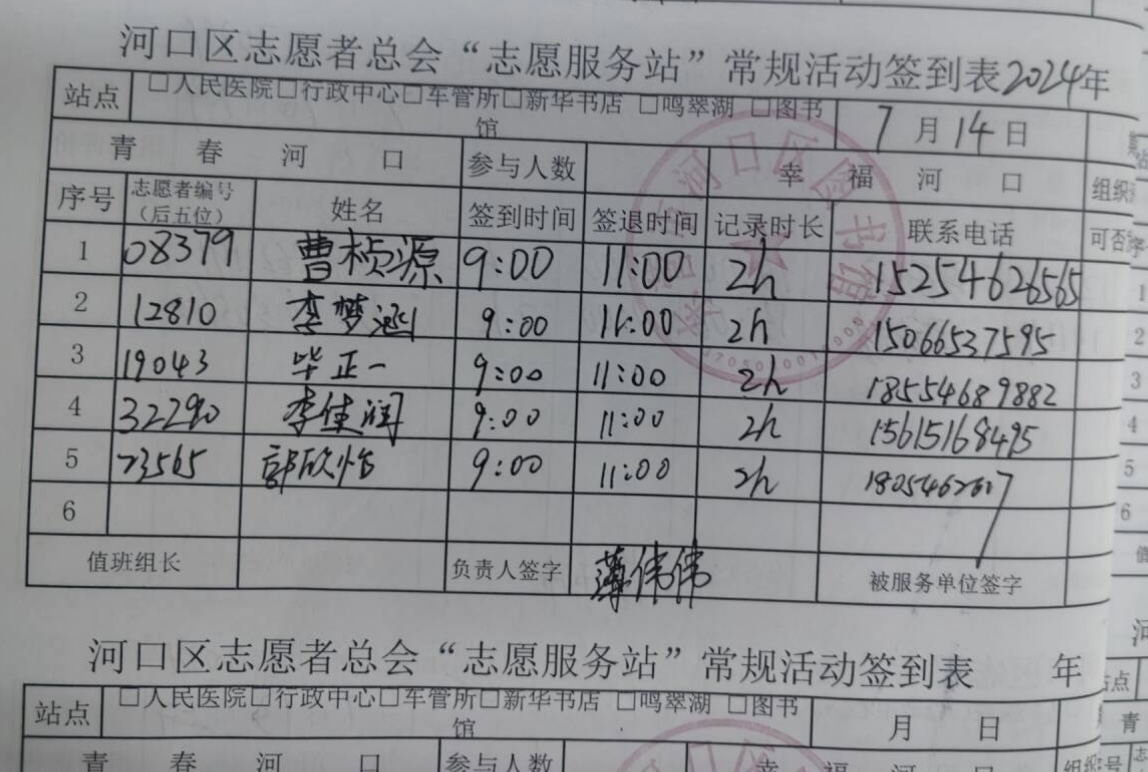 河口区志愿者总会“志愿服务站”常规活动签到表2024年
站点 □人民医院□行政中心□车管所□新华书店 □鸣翠湖 □图书馆 7月14日
青春河口 参与人数 幸福河口
序号 志愿者编号（后五位） 姓名 签到时间 签退时间 记录时长 联系电话
1 08379 曹桢源 9:00 11:00 2h 15254626565
2 12810 李梦 9:00 11:00 2h 15066537595
3 19043 毕正一 9:00 11:00 2h 18554689882
4 32290 李佳润 9:00 11:00 2h 15615168495
5 23565 郭欣怡 9:00 11:00 2h
6
值班组长 负责人签字 薄伟伟 被服务单位签字
河口区志愿者总会“志愿服务站”常规活动签到表 年
站点 □人民医院□行政中心□车管所□新华书店 □鸣翠湖 □图书馆 月 日
青春河口 参与人数 幸福河口
河口区图书馆
组织
可否
1
2
3
4
5
6